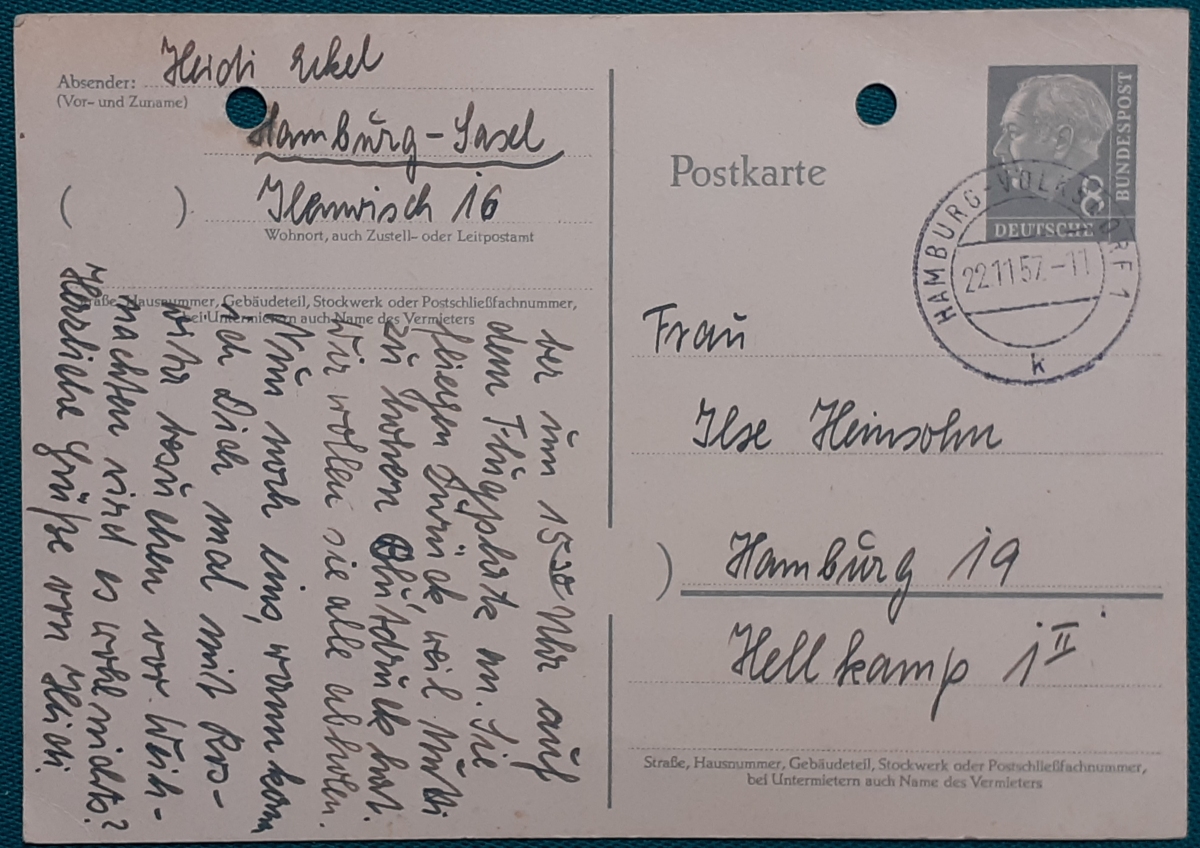 Absender: Heidi Eckel
(Vor- und Zuname)
Hamburg-Sasel
( ) Ilenwisch 16
Wohnort, auch Zustell- oder Leitpostamt
Straße, Hausnummer, Gebäudeteil, Stockwerk oder Postschließfachnummer,
bei Untermietern auch Name des Vermieters
ber um 15 30 Uhr auf
dem Flugplatz an. Sie
fliegen zurück, weil Mutti
zu hohen Blutdruck hat.
Wir wollen sie alle abholen.
Nun noch eins, wann kann
ich Dich mal mit
wihr besuchen vor Weih-
nachten wird es wohl nichts?
Herzliche Grüße von Heidi.
Postkarte
8
BUNDESPOST
DEUTSCHE
HAMBURG-VOLKSDORF 1
22.11.57.-11
k
Frau
Ilse Heinsohn
) Hamburg 19
Hellkamp 1 II
Straße, Hausnummer, Gebäudeteil, Stockwerk oder Postschließfachnummer,
bei Untermietern auch Name des Vermieters